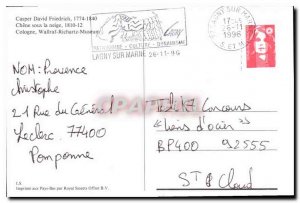 Caspar David Friedrich, 1774-1840
Chêne sous la neige, 1810-12
Cologne, Wallraf-Richartz-Museum
Lagny
PATRIMOINE - CULTURE - DYNAMISME
LAGNY SUR MARNE 26-11-96
LAGNY SUR MARNE
17
26-11
1996
S ET M
NOM: Provence
christophe
21 Rue du Général
Leclerc 77400
Pomponne
Concours
"Liens d'acier"
BP400 92555
St Cloud
Imprimé aux Pays-Bas par Royal Smeets Offset B.V.